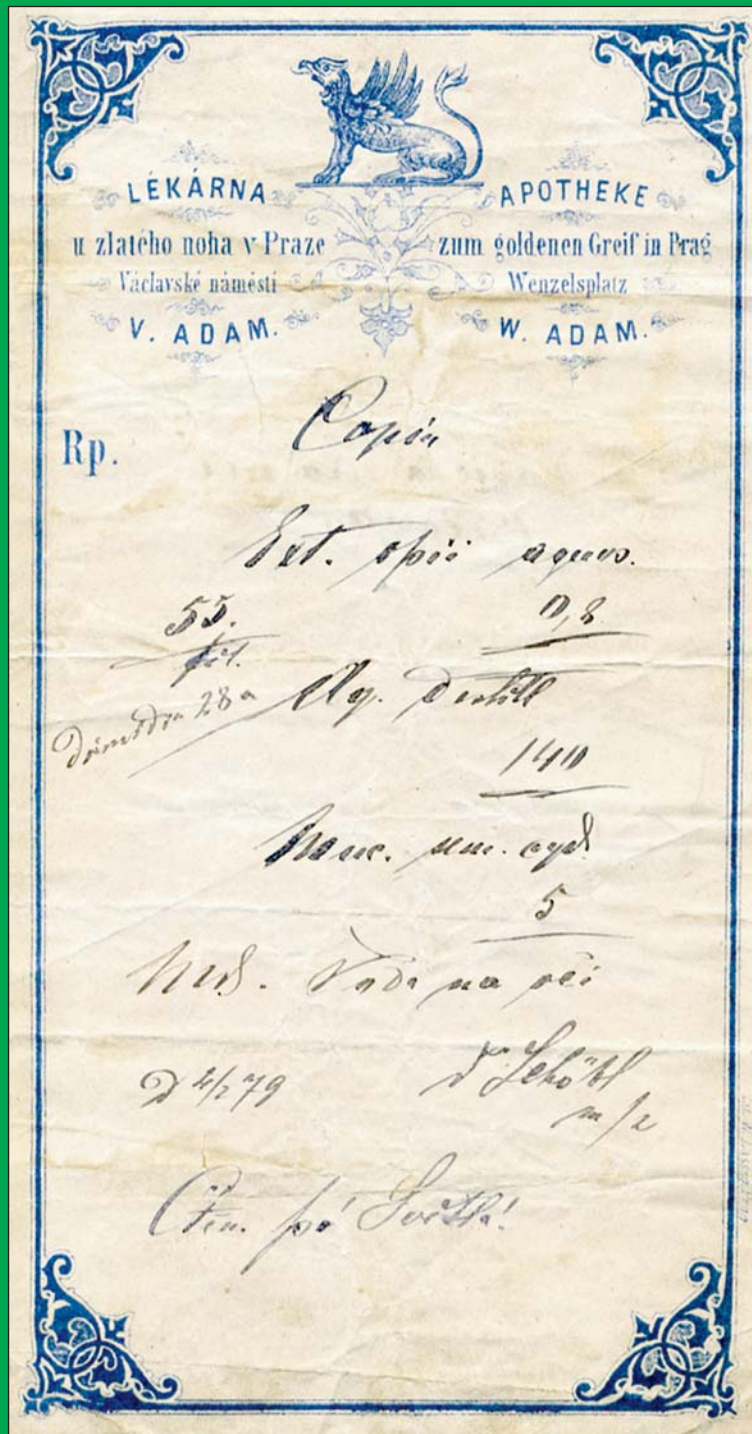 LÉKÁRNA
u zlatého noha v Praze
Václavské náměstí
V. ADAM.
APOTHEKE
zum goldenen Greif in Prag
Wenzelsplatz
W. ADAM.
Rp.
Copia
Ext. opii aquos.
0,8
55.
Aq. destill
140
Muc. gum. cyd.
5
MdS. Voda na oči
D 2/2 79
Dr Schöbl
m/p
Ctěn. pí Světlá!